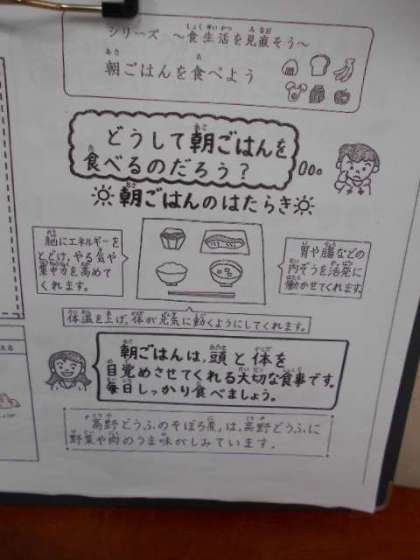 シリーズ ～食生活を見直そう～
朝ごはんを食べよう
どうして朝ごはんを
食べるのだろう？
朝ごはんのはたらき
脳にエネルギーを
とどけ、やる気や
集中力を高めて
くれます。
胃や腸などの
内ぞうを活発に
働かせてくれます。
体温を上げ、体が元気に動くようにしてくれます。
朝ごはんは、頭と体を
目覚めさせてくれる大切な食事です。
毎日しっかり食べましょう。
「高野どうふのそぼろ煮」は、高野どうふに
野菜や肉のうま味がしみています。